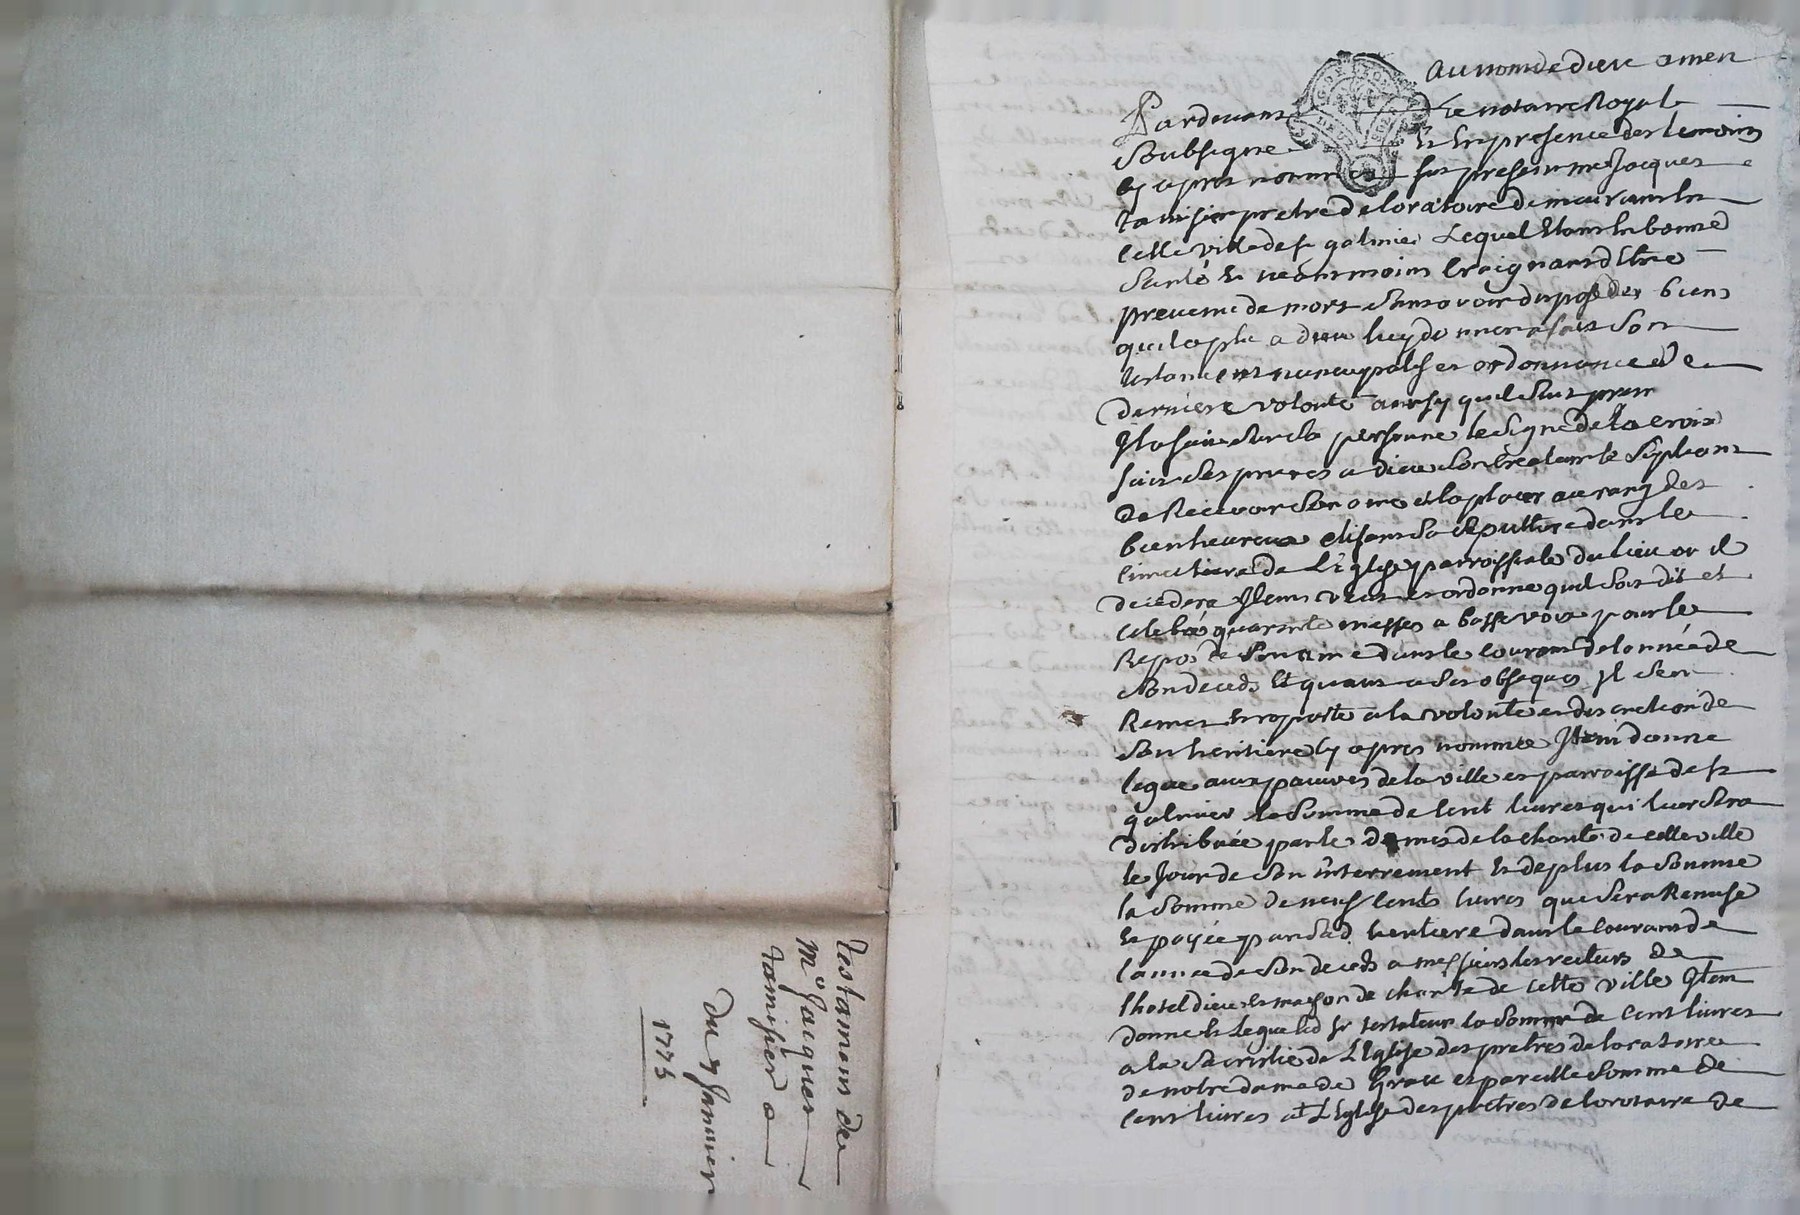 Testament de
Mo Jacques
tamisier
du 7 Janvier
1775
Au nom de dieu amen
Pardevant Le notaire Royal
Soubsigne Et En presence des temoins
cy apres nommes fut present mre Jacques
tamisier pretre de loratoire demeurant En
Cette ville de st galmier Lequel Etant En bonne
Santé Et neantmoins Craignant d'Etre
prevenu de mort Sans avoir disposé des biens
quil a plu a dieu luy donner a fait Son
testament nuncupatif et ordonnance de
derniere volonté ainsy quil Suit premr
Il a fait Sur Sa personne le Signe de la croix
fait Ses prieres a dieu Son Createur le Supliant
De Recevoir Son ame et la placer au rang des
bienheureux elisant Sa Sepulture dans le
Cimetiere de L'Eglise parroissiale du lieu ou il
decedera Item veut et ordonne quil Soit dit et
Celebré quarante messes a basse voix pour le
Repos de Son ame dans le courant de lannée de
Son deceds Et quant a Ses obseques Il S'en
Remet Et raporte a la volonté et discretion de
Son heritiere Cy apres nommée Item donne
legue aux pauvres de la ville et parroisse de st
galmier la Somme de Cent livres qui leur Sera
distribuée par les dames de la charité de cette ville
le Jour de Son interrement Et de plus la Somme
la Somme de neuf Cents livres que Sera Remise
Et payée par Sad. heritiere dans le courant de
l'année de Son deceds a messieurs les recteurs de
lhotel dieu Et maison de charité de Cette ville Item
donne Et legue led sr testateur la Somme de Cent livres
a la Sacristie de L'Eglise des pretres de loratoire
de notre dame de Grace et pareille Somme de
Cent livres a L'Eglise des pretres de loratoire de